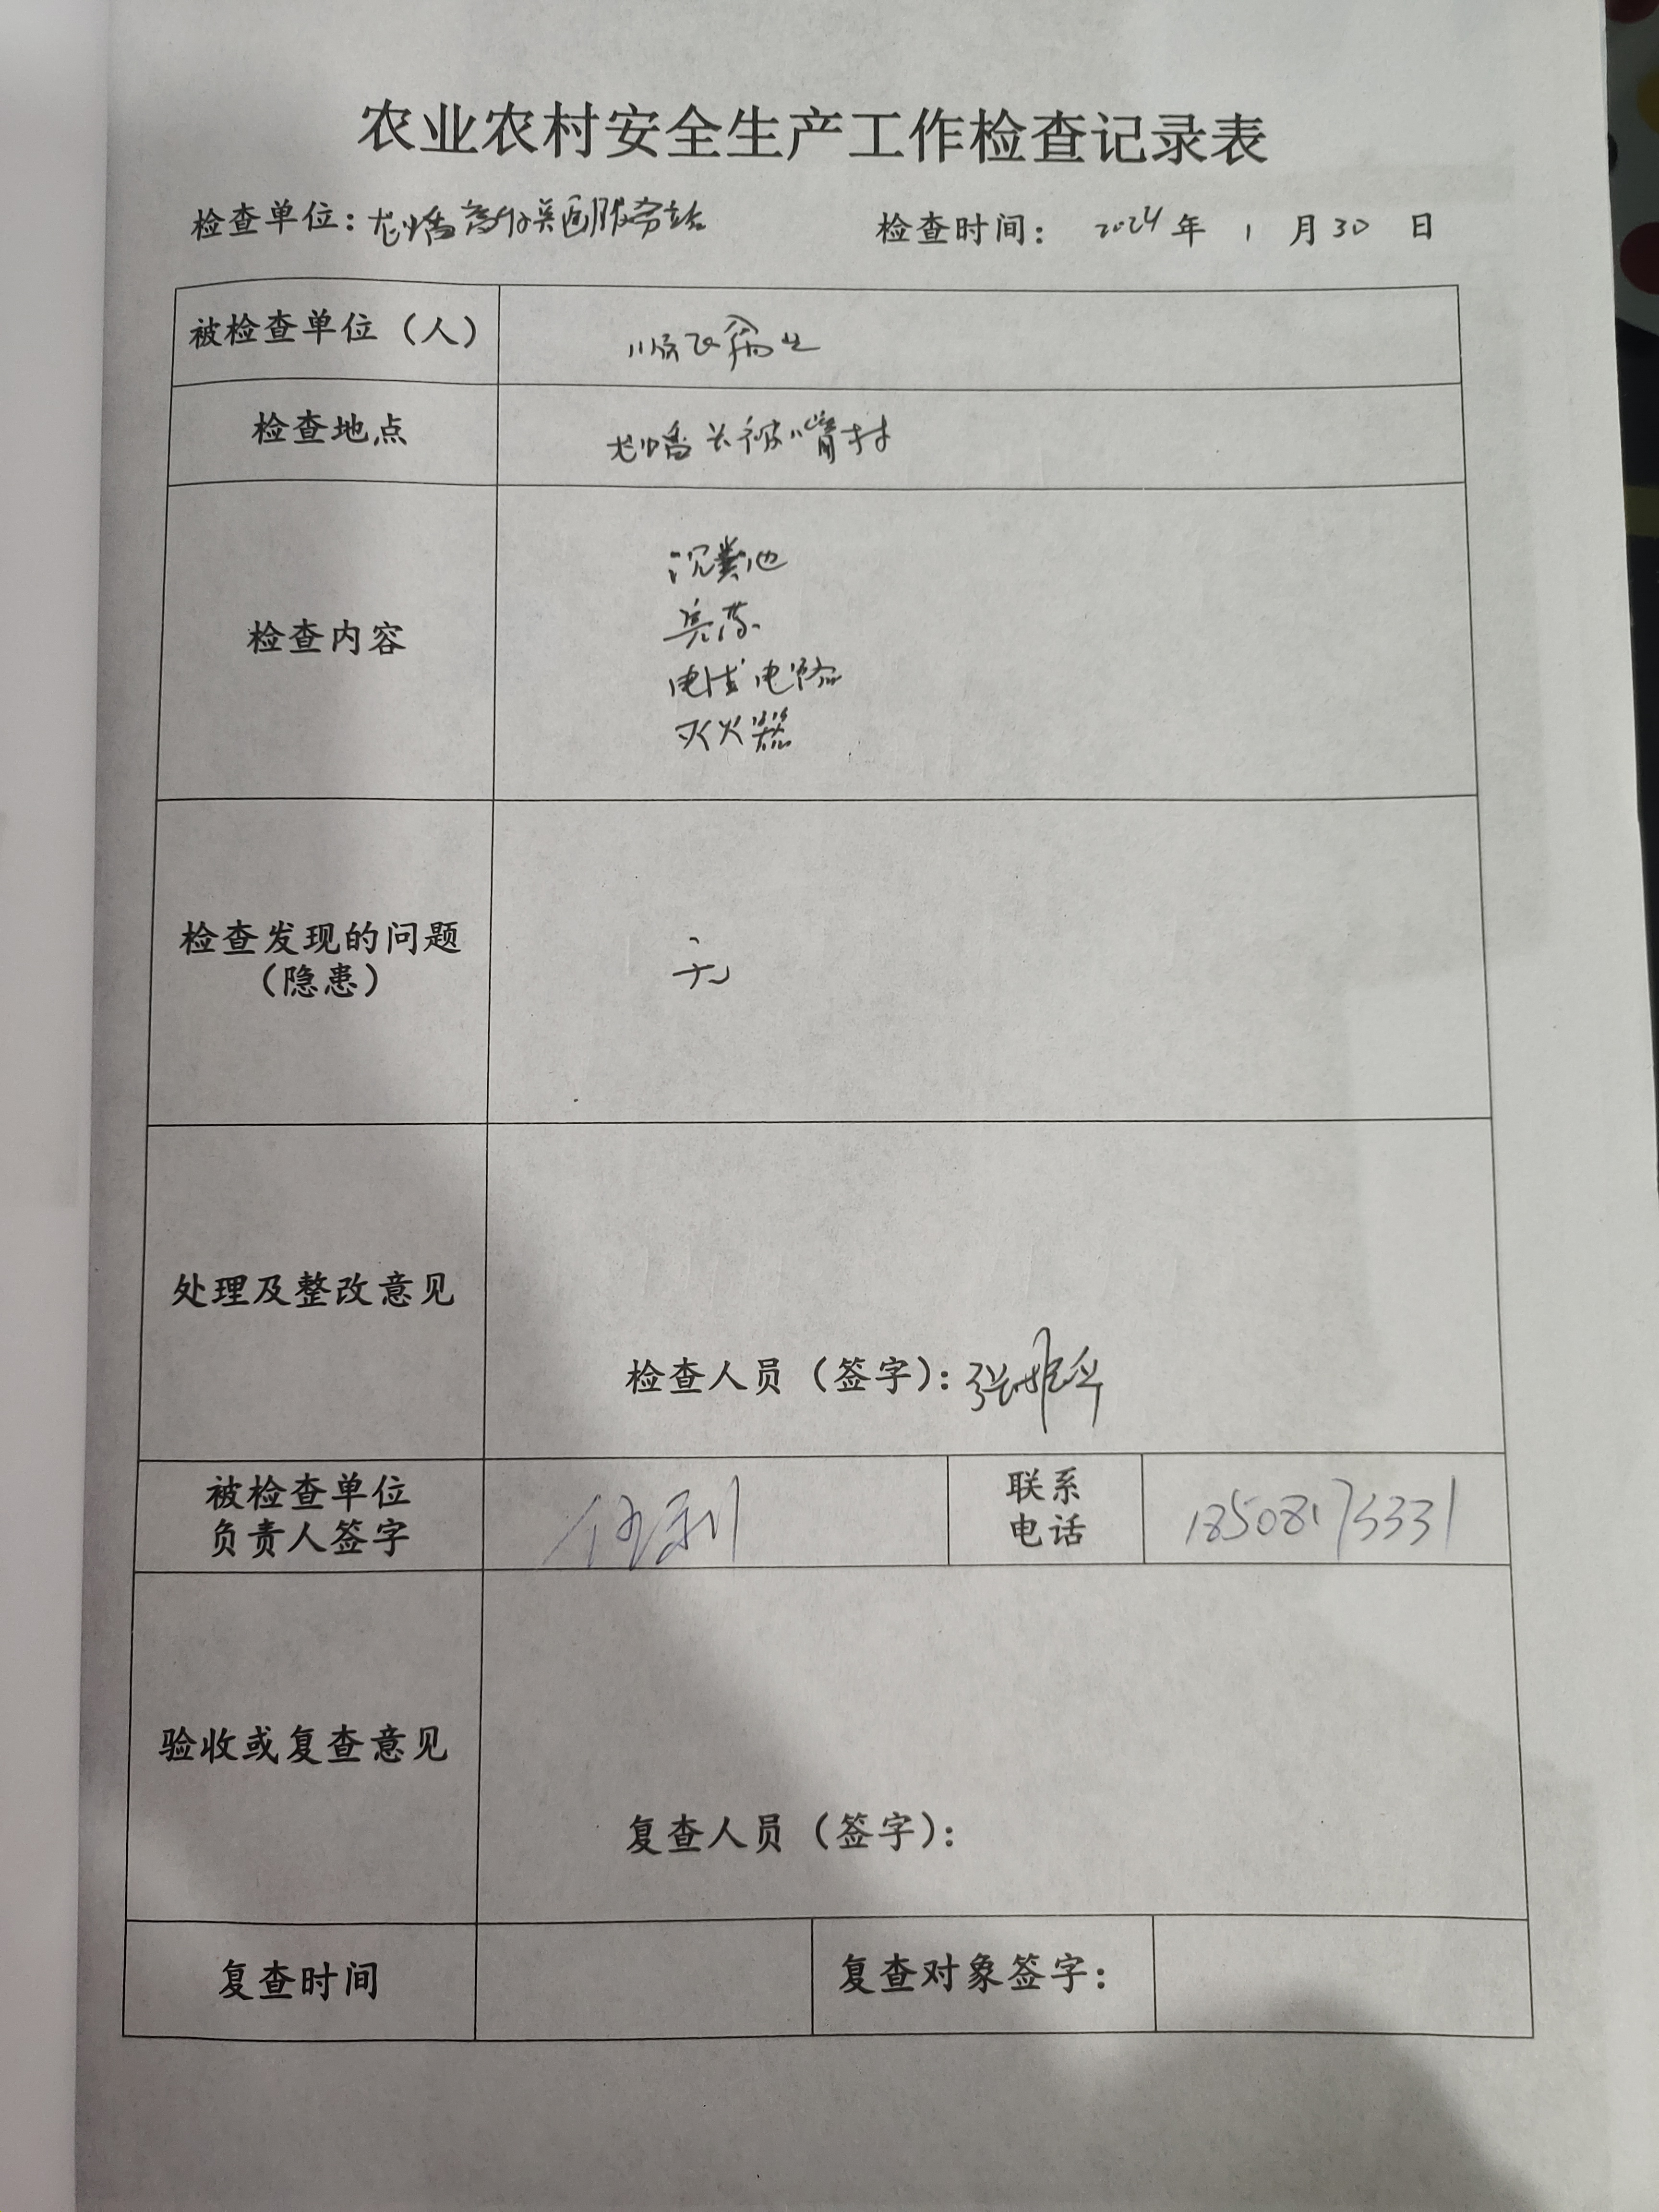 农业农村安全生产工作检查记录表
检查单位：龙蟠畜牧兽医服务站 检查时间： 2024年 1 月30 日
被检查单位（人）
检查地点 龙蟠长被嘴村
检查内容
沉粪池
兽药
电线电路
灭火器
检查发现的问题
（隐患）
无
处理及整改意见
检查人员（签字）：
被检查单位
负责人签字
联系
电话
验收或复查意见
复查人员（签字）：
复查时间 复查对象签字：